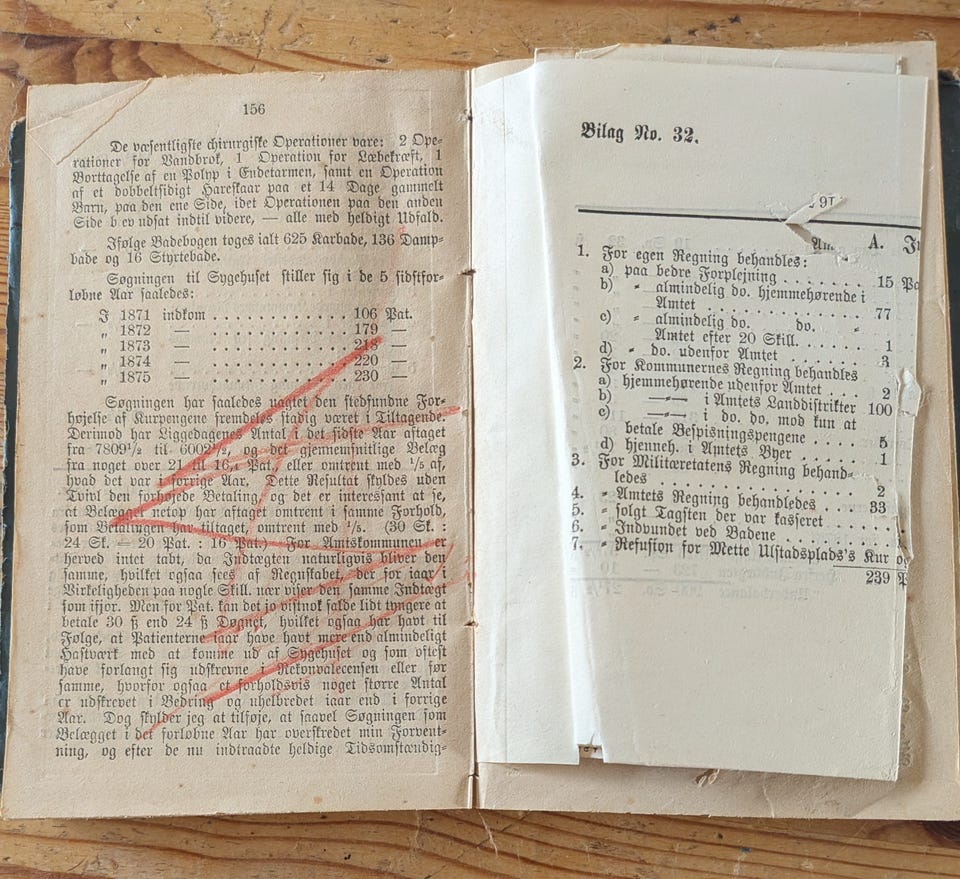 156
De væsentligste chirurgiske Operationer vare: 2 Ope-
rationer for Vandbrok, 1 Operation for Læbekræft, 1
Borttagelse af en Polyp i Endetarmen, samt en Operation
af et dobbeltsidigt Hareskaar paa et 14 Dage gammelt
Barn, paa den ene Side, idet Operationen paa den anden
Side b ev udsat indtil videre, — alle med heldigt Udfald.
Ifølge Badebogen toges ialt 625 Karbade, 136 Damp-
bade og 16 Styrtebade.
Søgningen til Sygehuset stiller sig i de 5 sidstfor-
løbne Aar saaledes:
I 1871 indkom . . . . . . . . . . . 106 Pat.
„ 1872 — . . . . . . . . . . . 179 —
„ 1873 — . . . . . . . . . . . 218 —
„ 1874 — . . . . . . . . . . . 220 —
„ 1875 — . . . . . . . . . . . 230 —
Søgningen har saaledes uagtet den stedfundne For-
højelse af Kurpengene fremdeles stadig været i Tiltagende.
Derimod har Liggedagenes Antal i det sidste Aar aftaget
fra 7809½ til 6002½, og det gjennemsnitlige Belæg
fra noget over 21 til 16,4 Pat. eller omtrent med ⅕ af,
hvad det var i forrige Aar. Dette Resultat skyldes uden
Tvivl den forhøiede Betaling, og det er interessant at se,
at Belægget netop har aftaget omtrent i samme Forhold,
som Betalingen har tiltaget, omtrent med ⅕. (30 Sk. :
24 Sk. — 20 Pat. : 16 Pat.) For Amtskommunen er
herved intet tabt, da Indtægten naturligvis bliver den
samme, hvilket ogsaa sees af Regnskabet, der for iaar i
Virkeligheden paa nogle Skill. nær viser den samme Indtægt
som ifjor. Men for Pat. kan det jo vistnok falde lidt tyngere at
betale 30 ß end 24 ß Døgnet, hvilket ogsaa har havt til
Følge, at Patienterne iaar have havt mere end almindeligt
Hastværk med at komme ud af Sygehuset og som oftest
have forlangt sig udskrevne i Rekonvalecensen eller før
samme, hvorfor ogsaa et forholdsvis noget større Antal
er udskrevet i Bedring og uhelbredet iaar end i forrige
Aar. Dog skylder jeg at tilføje, at saavel Søgningen som
Belægget i det forløbne Aar har overskredet min Forvent-
ning, og efter de nu indtraadte heldige Tidsomstændig-
Bilag No. 32.
A.
1. For egen Regning behandles:
a) paa bedre Forplejning . . . . . . . . 15
b) „ almindelig do. hjemmehørende i
Amtet . . . . . . . . . . 77
c) „ almindelig do. do. „
Amtet efter 20 Skill. . . . . . 1
d) „ do. udenfor Amtet . . . . 3
2. For Kommunernes Regning behandles
a) hjemmehørende udenfor Amtet . . . . 2
b) —„— i Amtets Landdistrikter 100
c) —„— i do. do. mod kun at
betale Bespisningspengene . . . . . 5
d) hjenneh. i Amtets Byer . . . . . 1
3. For Militæretatens Regning behand-
ledes . . . . . . . . . . . 2
4. „ Amtets Regning behandledes . . . 33
5. „ solgt Tagsten der var kasseret . . . .
6. „ Indvundet ved Badene . . . . .
7. „ Refusion for Mette Ulstadsplads's Kur
239